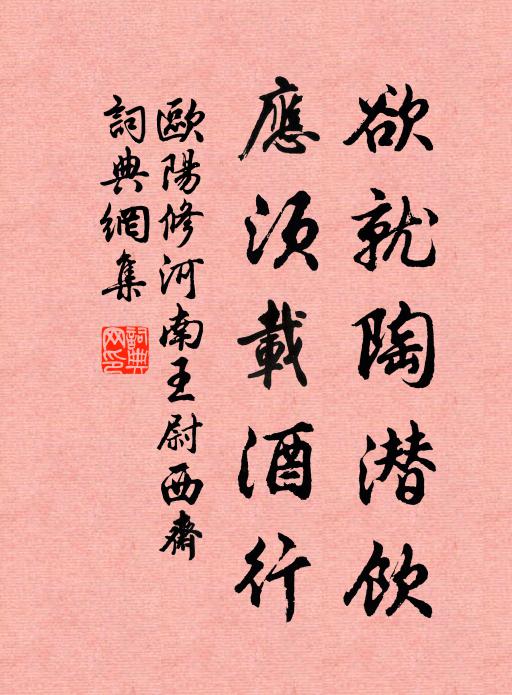 欲就陶潜飲
應須載酒行
歐陽修河南王尉西齋
詞典網集
詞典网印